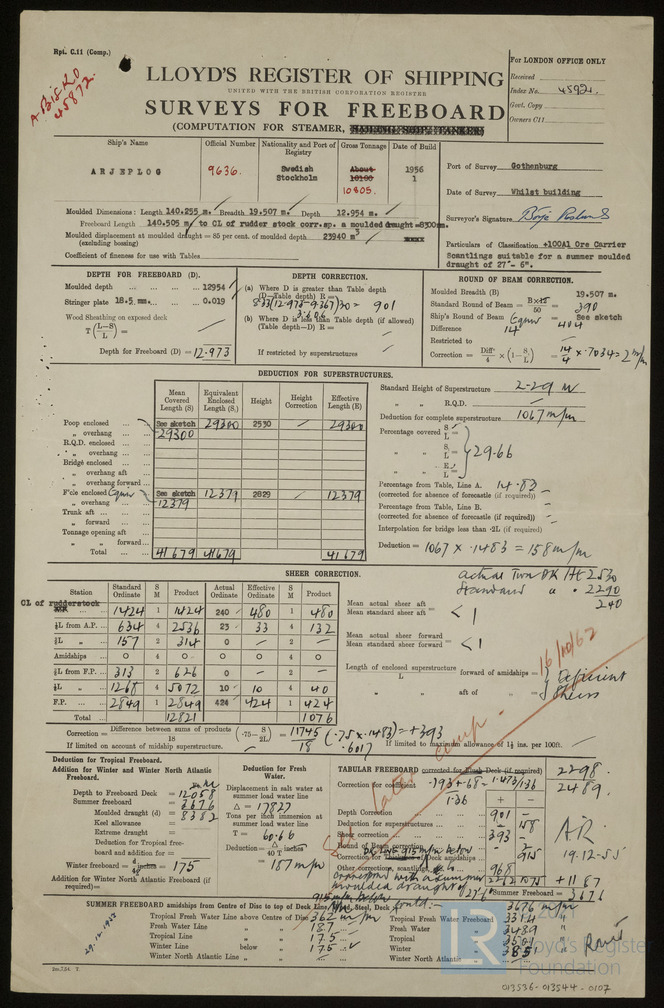 Rpt. C.11 (Comp.)
A-Bis RD
45872.
LLOYD'S REGISTER OF SHIPPING
UNITED WITH THE BRITISH CORPORATION REGISTER
SURVEYS FOR FREEBOARD
(COMPUTATION FOR STEAMER,
For LONDON OFFICE ONLY
Received
Index No. 45921.
Govt. Copy
Owners C11
Ship's Name
Official Number
Nationality and Port of Registry
Gross Tonnage
Date of Build
ARJEPLOG
9636.
Swedish
Stockholm
About
10100
10805.
1956
1
Port of Survey Gothenburg
Date of Survey Whilst building
Surveyor's Signature
Particulars of Classification +100A1 Ore Carrier
Scantlings suitable for a summer moulded
draught of 27'- 6".
Moulded Dimensions: Length 140.255 m. Breadth 19.507 m. Depth 12.954 m.
Freeboard Length 140.505 m. to CL of rudder stock corr.sp. a moulded draught =8300mm.
Moulded displacement at moulded draught = 85 per cent. of moulded depth 23940 m3
(excluding bossing)
Coefficient of fineness for use with Tables
DEPTH FOR FREEBOARD (D).
Moulded depth 12954
Stringer plate 18.5 mm. 0.019
Wood Sheathing on exposed deck
T(L-S/L) =
Depth for Freeboard (D) = 12.973
DEPTH CORRECTION.
(a) Where D is greater than Table depth
(D-Table depth) R =
8.33(12.973-9.367)30 = 901
3.606
(b) Where D is less than Table depth (if allowed)
(Table depth-D) R =
If restricted by superstructures
ROUND OF BEAM CORRECTION.
Moulded Breadth (B) 19.507 m.
Standard Round of Beam = B×12/50 = 390
Ship's Round of Beam = See sketch
404
Difference 14
Restricted to
Correction = Diff/4 × (1-S/L) = 14/4 × .7034 = 2 m/m
DEDUCTION FOR SUPERSTRUCTURES.
Mean Covered Length (S)
Equivalent Enclosed Length (S₁)
Height
Height Correction
Effective Length (E)
Poop enclosed See sketch 29300 2530 29300
„ overhang 29300
R.Q.D. enclosed
„ overhang
Bridge enclosed
„ overhang aft
„ overhang forward
F'cle enclosed See sketch 12379 2829 12379
„ overhang 12379
Trunk aft
„ forward
Tonnage opening aft
„ „ forward
Total 41679 41679 41679
Standard Height of Superstructure 2.29 m
„ „ R.Q.D.
Deduction for complete superstructure 1067 m/m
Percentage covered S/L =
„ „ S₁/L = 29.66
„ „ E/L =
Percentage from Table, Line A. 14.83
(corrected for absence of forecastle (if required))
Percentage from Table, Line B.
(corrected for absence of forecastle (if required))
Interpolation for bridge less than ·2L (if required)
Deduction = 1067 × .1483 = 158 m/m
SHEER CORRECTION.
actual Twn DK Ht 2530
Standard „ . 2290
240
Station
Standard Ordinate
S M
Product
Actual Ordinate
Effective Ordinate
S M
Product
CL of rudderstock 1424 1 1424 240 480 1 480
⅙L from A.P. 634 4 2536 23 33 4 132
⅓L „ 157 2 314 0 - 2 -
Amidships 0 4 0 0 0 4 0
⅓L from F.P. 313 2 626 0 - 2 -
⅙L „ 1268 4 5072 10 10 4 40
F.P. 2849 1 2849 424 424 1 424
Total 12821 1076
Mean actual sheer aft
Mean standard sheer aft = < 1
Mean actual sheer forward
Mean standard sheer forward = < 1
Length of enclosed superstructure forward of amidships =
L
„ „ aft of „ =
deficient
sheers
16/10/62
Correction = Difference between sums of products / 18 (·75-S/2L) = 11745/18 (.75 × .1483) = +393
.6017
If limited on account of midship superstructure.
If limited to maximum allowance of 1½ ins. per 100ft.
See later comp.
Deduction for Tropical Freeboard.
Addition for Winter and Winter North Atlantic Freeboard.
Depth to Freeboard Deck = 12058
Summer freeboard = 3676
Moulded draught (d) = 8382
Keel allowance =
Extreme draught =
Deduction for Tropical freeboard and addition for =
Winter freeboard = d/48 = 175
Addition for Winter North Atlantic Freeboard (if required) =
Deduction for Fresh Water.
Displacement in salt water at summer load water line
Δ = 17827
Tons per inch immersion at summer load water line
T = 60.66
Deduction = Δ/40 T inches
= 187 m/m
TABULAR FREEBOARD corrected for Flush Deck (if required) 2298.
Correction for coefficient .793+.68/1.36 = 1.473/1.36 2489.
+ -
Depth Correction 901 -
Deduction for superstructures - 158
Sheer correction 393 -
Round of Beam correction - 2
DK Line 915 m/m below
Correction for Thickness of Deck amidships - 915
Other corrections, scantlings, etc. 968
correspond with a summer
moulded draught of 27'6"
2262 1075 +1187
Summer Freeboard = 3676
A.R.
19.12-55
SUMMER FREEBOARD amidships from Centre of Disc to top of Deck Line,
Tropical Fresh Water Line above Centre of Disc 362 m/m
Fresh Water Line „ „ 187
Tropical Line „ „ 175
Winter Line below „ „ 175
Winter North Atlantic Line „ „
3676 m/m
Tropical Fresh Water Freeboard 3314 „
Fresh Water „ 3489 „
Tropical „ 3501 „
Winter „ 3851 „
Winter North Atlantic „
29.12.1955
2m.7.54 T.
LR
Lloyd's Register
Foundation
013536-013544-0107